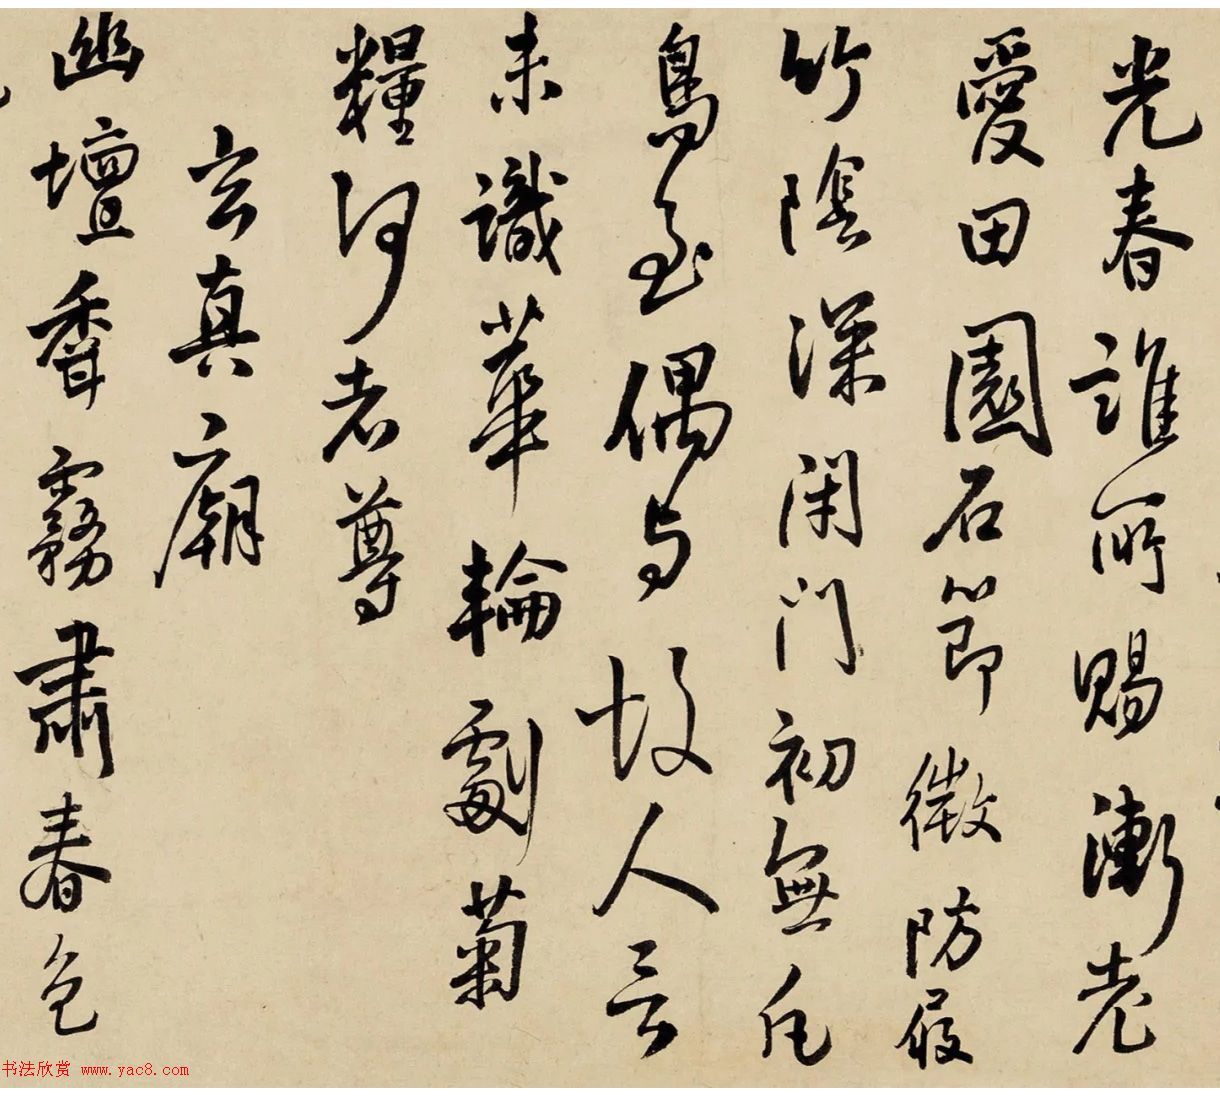 光春誰所賜漸老
愛田園石節微防屐
竹陰深閑門初無凡
鳥至偶與故人言
未識華輪劇菊
糧何老尊
玄真廟
幽壇香霧肅春色
书法欣赏 www.yac8.com